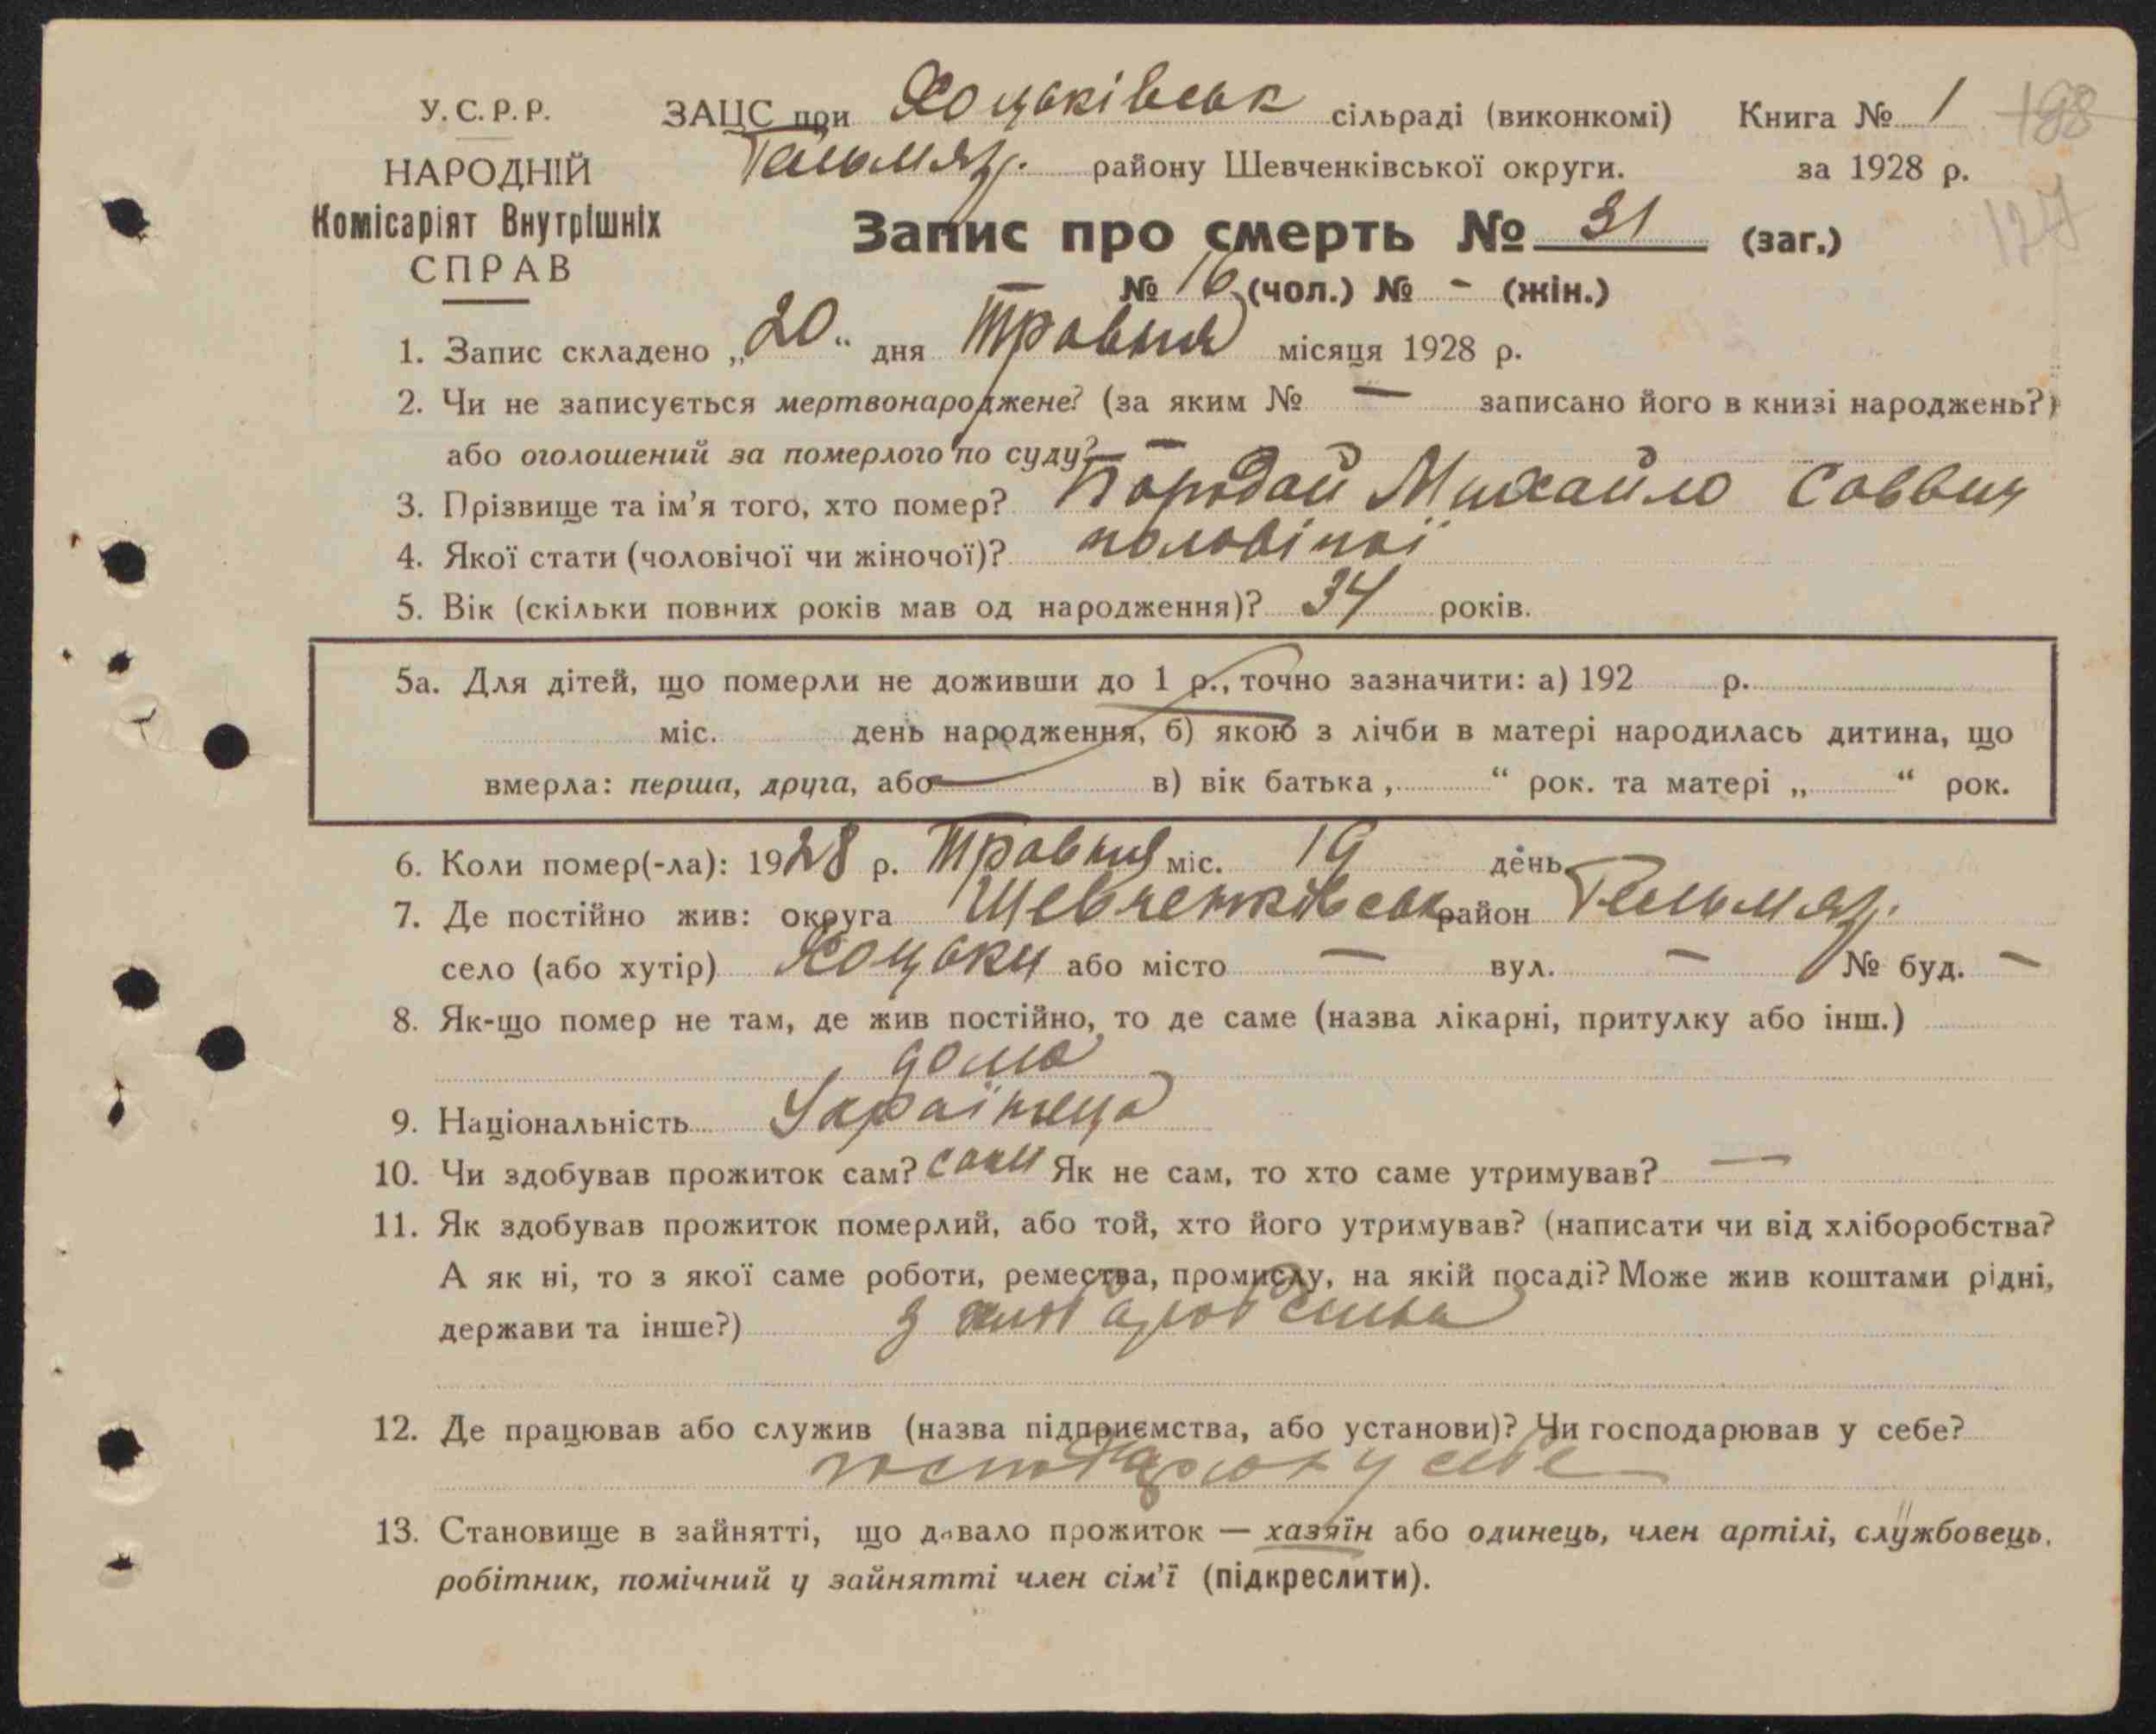 У.С.Р.Р. ЗАЦС при Хоцьківськ сільраді (виконкомі) Книга № 1 188
НАРОДНІЙ Гельмяз. району Шевченківської округи. за 1928 р.
Комісаріят Внутрішніх Запис про смерть № 31 (заг.) 127
СПРАВ № 16 (чол.) № - (жін.)
1. Запис складено „20" дня Травня місяця 1928 р.
2. Чи не записується мертвонароджене? (за яким № — записано його в книзі народжень?)
або оголошений за померлого по суду? —
3. Прізвище та ім'я того, хто помер? Бородай Михайло Саввич
4. Якої стати (чоловічої чи жіночої)?
5. Вік (скільки повних років мав од народження)? 34 років.
5а. Для дітей, що померли не доживши до 1 р., точно зазначити: а) 192 р.
міс. день народження, б) якою з лічби в матері народилась дитина, що
вмерла: перша, друга, або в) вік батька „ “ рок. та матері „ “ рок.
6. Коли помер(-ла): 1928 р. Травня міс. 19 день
7. Де постійно жив: округа Шевченківськ район Гельмяз.
село (або хутір) Хоцьки або місто — вул. — № буд. —
8. Як-що помер не там, де жив постійно, то де саме (назва лікарні, притулку або інш.)
дома
9. Національність Українець
10. Чи здобував прожиток сам? сам Як не сам, то хто саме утримував? —
11. Як здобував прожиток померлий, або той, хто його утримував? (написати чи від хліборобства?
А як ні, то з якої саме роботи, ремества, промислу, на якій посаді? Може жив коштами рідні,
держави та інше?) з
12. Де працював або служив (назва підприємства, або установи)? Чи господарював у себе?
у себе
13. Становище в зайнятті, що давало прожиток — хазяїн або одинець, член артілі, службовець,
робітник, помічний у зайнятті член сім'ї (підкреслити).